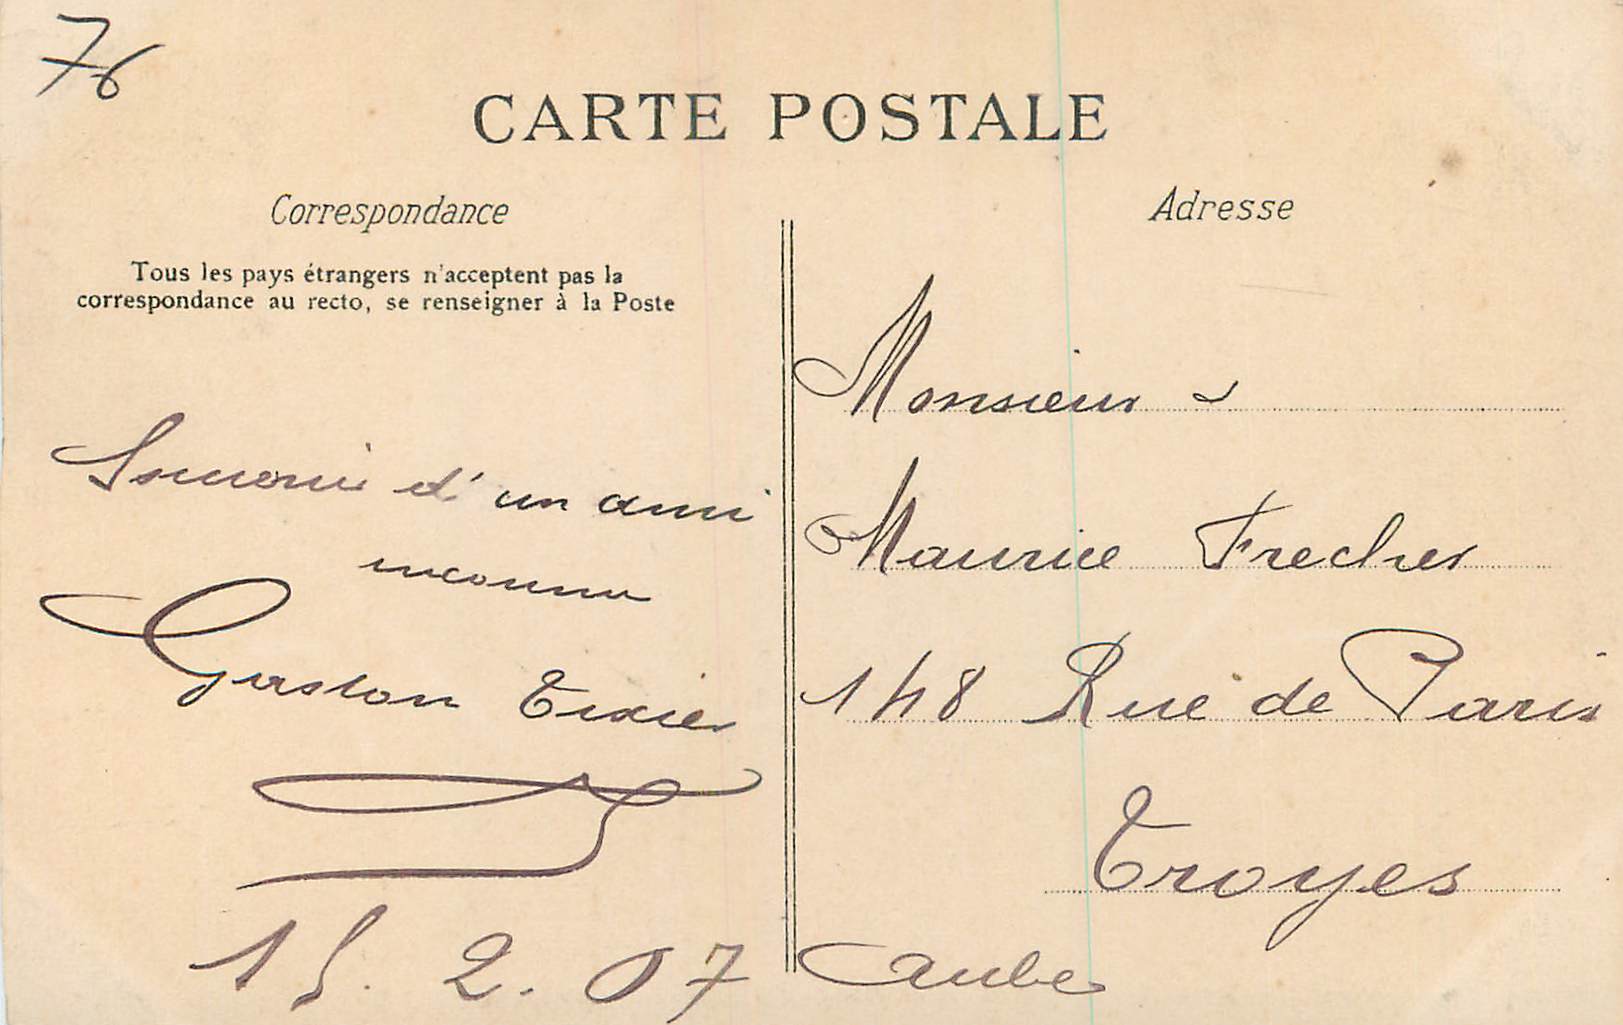 76
CARTE POSTALE
Correspondance
Tous les pays étrangers n'acceptent pas la
correspondance au recto, se renseigner à la Poste
Souvenir d'un ami
inconnu
Gaston Tixier
15. 2. 07
Adresse
Monsieur
Maurice Frecher
148 Rue de Paris
Troyes
Aube